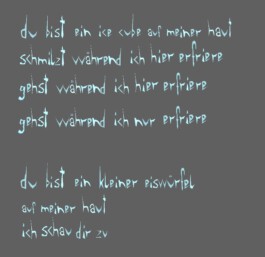 du bist ein ice cube auf meiner haut
schmilzt während ich hier erfriere
gehst während ich hier erfriere
gehst während ich nur erfriere
du bist ein kleiner eiswürfel
auf meiner haut
ich schau dir zu